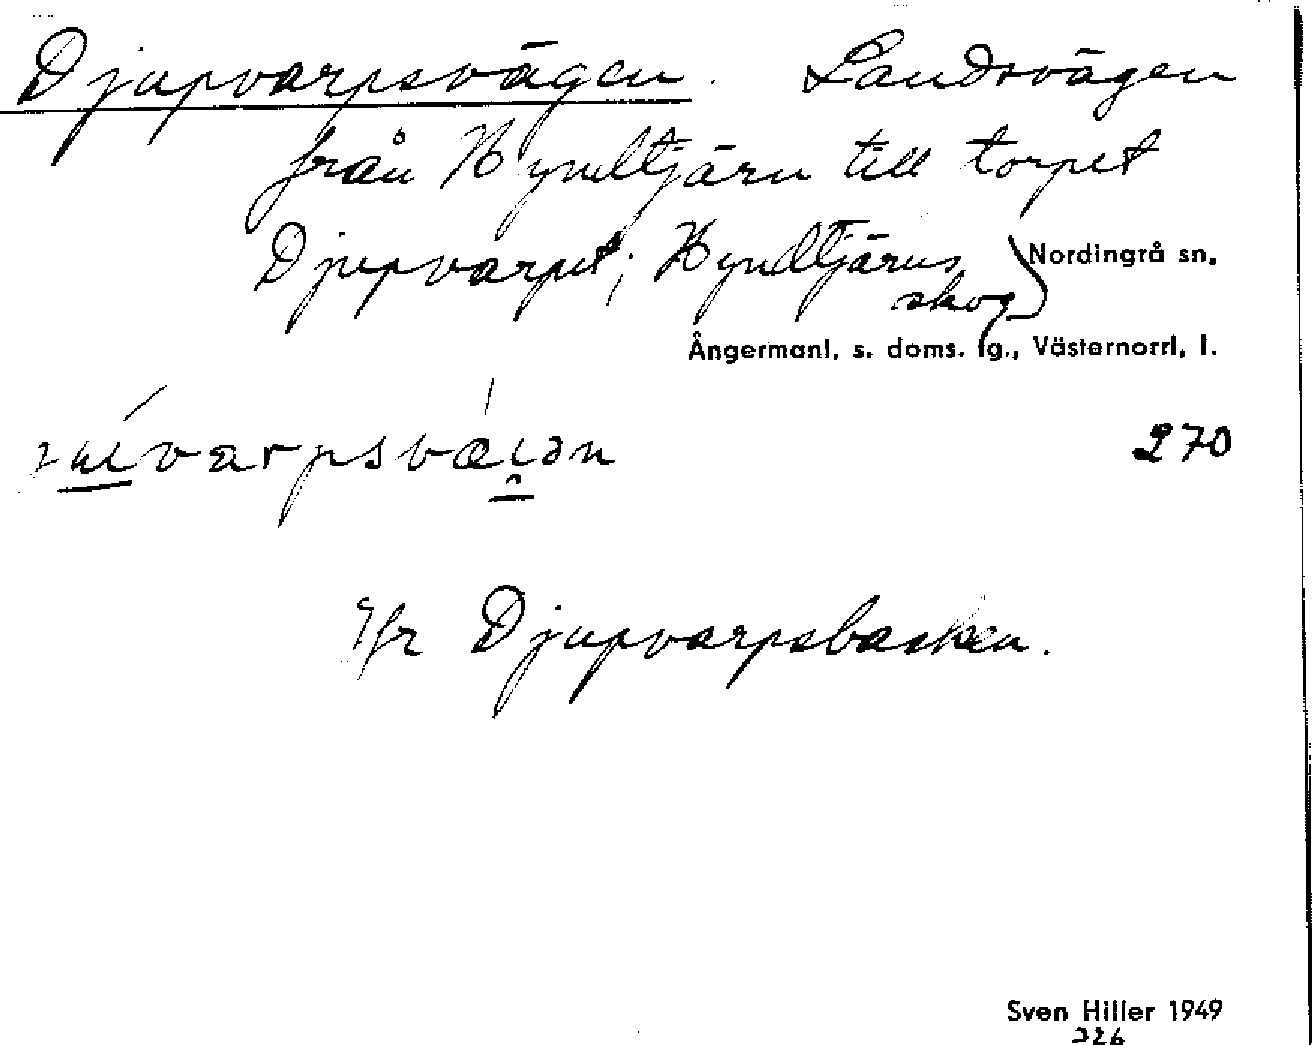 Djupvarpsvägen. Landsvägen
från Hyndtjärn till torpet
Djupvarpet; Hyndtjärns
skog
Nordingrå sn.
Ångermanl. s. doms. fg., Västernorrl. l.
270
Jfr Djupvarpsbacken.
Sven Hiller 1949
226